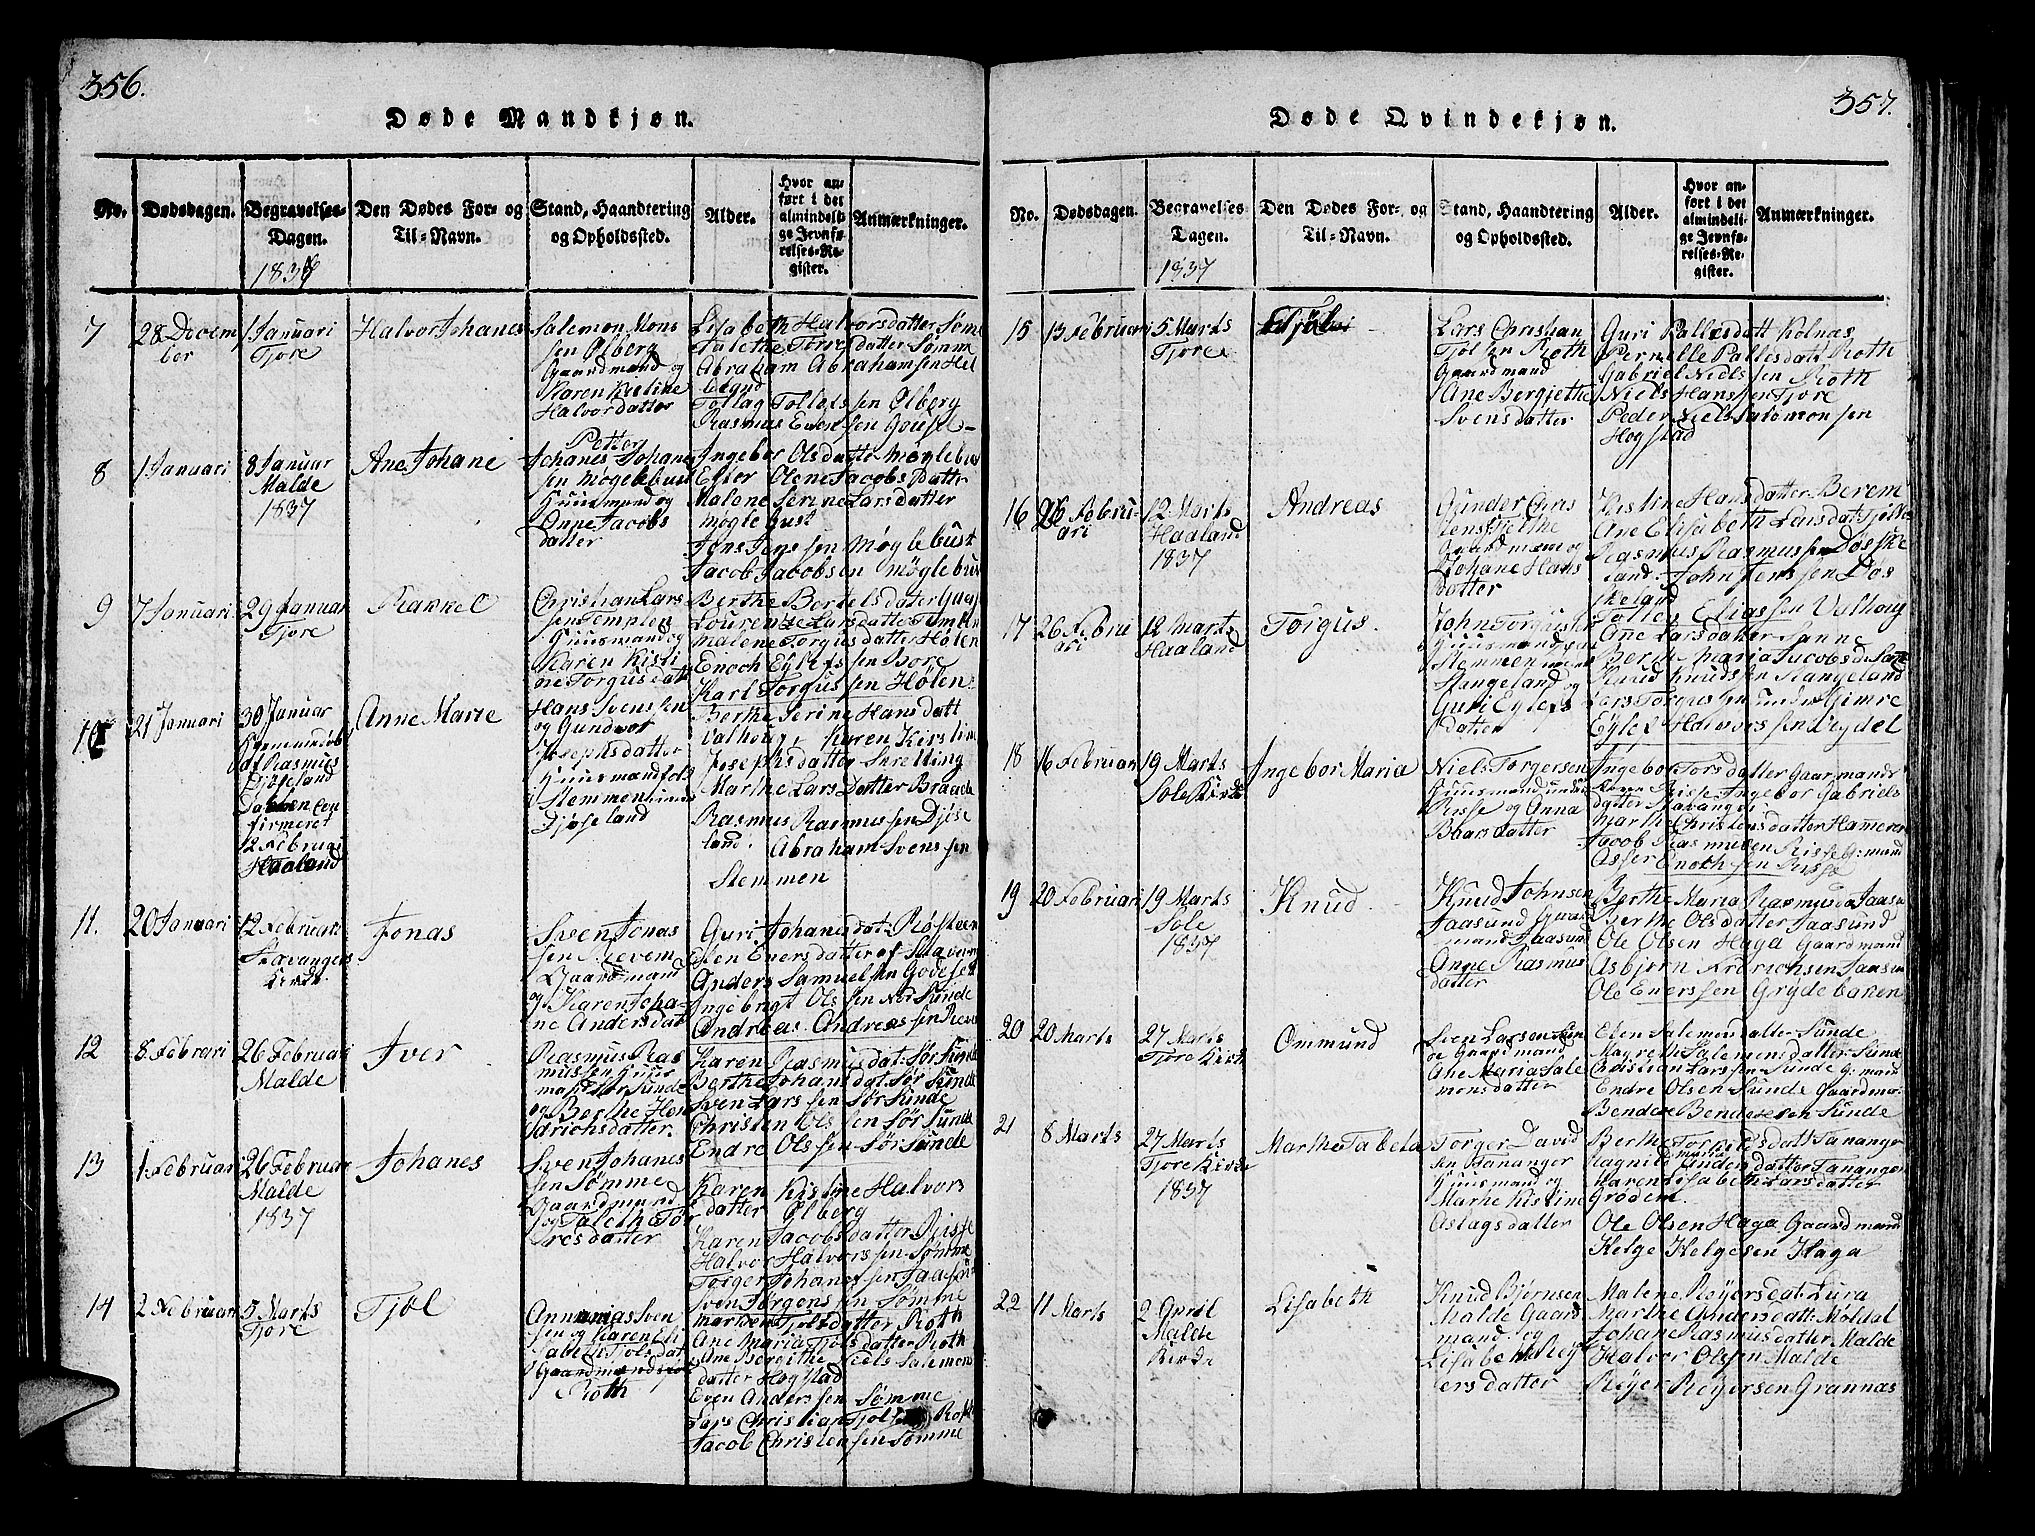 356.
Døde Mandkjøn.
No.
Dødsdagen.
Begravelses-
Dagen.
1836
Den Dødes For- og
Til-Navn.
Stand, Haandtering
og Opholdssted.
Alder.
Hvor an-
ført i det
almindeli-
ge Jevnfø-
relses-Re-
gister.
Anmærkninger.
7
28 Decem
ber
1 Januari
Tjore
Halvor Johanes
Salemon Mons
sen Ølberg
Gaardmand og
Karen Kistine
Halvordatter
Lisabeth Halvorsdatter Sømme
Talethe Torresdatter Sømme
Abraham Abrahamsen Hel
Tollag Tollefssen Ølberg
Rasmus Evensen Gouse
8
1 Januari
8 Januar
Malde
1837
Ane Johane
Petter
Johanes Johane
sen Møglebust
Huusmand og
Anne Jacobs
datter
Ingebor Olsdatter Møglebust
Ester Olene Jacobs Datter
Malene Serine Larsdatter
Møglebust
Jens Jenssen Møglebust
Jacob Jacobsen Møglebust
9
7 Januari
29 Januar
Tjore
Rakkel
Christian Lars
sen Templen
Huusmand og
Karen Kisti
ne Torgusdatt
Berthe Bertelsdatter
Lourentze Larsdatter
Malene Torgusdatter Holen
Enoch Eylefssen Bore
Karl Torgussen Holen
10
21 Januari
30 Januar
af Rasmus
Djøseland
Daaben con
firmeret
12 Februar
Haaland
Anne Marie
Hans Svenssen
og Gundvor
Josephsdatter
Huusmandfolk
Stemmen under
Djøseland
Berthe Serine Hansdatt
Valhoug, Karen Kirstine
Josephsdatter Snelling
Marthe Lars Datter Braade
Rasmus Rasmussen Djøse
land.
Abraham Svenssen
Stemmen
11.
20 Januari
12 Februari
Stavanger
Kirke
Jonas
Sven Jonas
sen Revem
Gaardmand
og Karen Joha-
ne Andersdat
Guri Johanesdat: Røskeen
Elen Enersdatter af Stavan
Anders Samuelsen Godesen
Ingebrigt Olssen Nor Sunde
Andreas Andreassen Reve
12
8 Febrari
26 Februari
Malde
Iver
Rasmus Ras
mussen Huus
mand Sør Sunde
og Berthe Hen
drichsdatter
Karen Rasmusdat: Sør Sunde
Berthe Johansdat: Sør Sunde
Sven Larssen Sør Sunde
Christen Olssen Sør Sunde
Endre Olssen Sør Sunde
13
1 Februari
26 Februari
Malde
1837
Johanes
Sven Johanes
sen Sømme
Gaardmand
og Talethe Tør
resdatter
Karen Kistine Halvors
datter Ølberg
Karen Jacobsdatter Risse
Halvor Halvorssen Sømme
Torger Johanessen Jaasund
14
2 Februari
5 Marts
Tjore
Tjøl
Annanias Sven
sen og Karen Eli
sabeth Tjølsdat
Gaardmandsfolk
Roth
Sven Jørgenssen Sømme
Marthe Tjølsdatter Roth
Ane Maria Tjølsdatter Roth
Ane Bergithe Niels Salemon
datter Hogstad
Even Anderssen Sømme
Lars Christian Tjølsen Roth
Jacob Christenssen Sømme
357.
Døde Qvindekjøn.
No.
Dødsdagen.
Begravelses-
Dagen.
1837
Den Dødes For- og
Til-Navn.
Stand, Haandtering
og Opholdssted.
Alder.
Hvor an-
ført i det
almindeli-
ge Jevnfø-
relses-Re-
gister.
Anmærkninger.
15
13 Februari
5 Marts
Tjore
Tjøl
Lars Christian
Tjølsen Roth
Gaardmand
Ane Bergjethe
Svensdatter
Guri Pallesdatt Kolnæs
Pernille Pallesdatt Roth
Gabriel Nielssen Roth
Niels Hanssen Tjore
Peder Niels Salomonsen
Hogstad
16
26 Febru-
ari
12 Marts
Haaland
1837
Andreas
Gunder Chris
tens Tjetthe
Gaardmand og
Johane Hans
datter
Kistine Hansdatter Berem
Ane Elisabeth Larsdat Tjøtte
Rasmus Rasmussen Døsske
land. John Jenssen Døs
skeland
17
26 Febru
ari
12 Marts
Haaland
Torgus
John Torgussen
Huusmand
Stemmen under
Stangeland og
Guri Eylefs
datter
Tollef Eliassen Valhoug
Ane Larsdatter Sanne
Berthe Maria Jacobsd. Sanne
Knud Knudssen Stangeland
Lars Torgussen under Gimre
Eylef Halvorssen Reydel
18
16 Februari
19 Marts
Sole Kirke
Ingebor Maria
Niels Torgersen
Huusmand under
Risse og Anna
Boarsdatter
Ingebor Torsdatter Gaarmands
Kone Risse, Ingebor Gabriels
datter Stavanger
Marthe Christensdatter Hamerer
Jacob Rasmussen Risse G: mand
Asser Enochssen Risse
19
20 Februari
19 Marts
Sole
1837
Knud
Knud Johnsen
Jaasund Gaar
mand Jaasund
Anne Rasmus
datter
Berthe Maria Rasmusda Jaasu
Berthe Olsdatter Jaasund
Ole Olsen Haga Gaardmand
Asbjørn Fredrichsen Jaasun
Ole Enerssen Grydebaken
20
20 Marts
27 Marts
Tjore Kirke
Ommund
Sven Larsen Sun
de Gaardmand
Ane Maria Sale
monsdatter
Elen Salemonsdatter Sunde
Magrethe Salemonsdatter Sunde
Christian Larssen Sunde G: mand
Endre Olsen Sunde Gaardma-
Bendix Bendixsen Sunde
21
8 Marts
27 Marts
Tjore Kirke
1837
Marthe Tabeta
Torger David
sen Tananger
Huusmand og
Marthe Kistine
Aslagsdatter
Berthe Torgersdatt Tananger
Ragnild Maria Andersdatter Tananger
Karen Lisabeth Larsdatter
Grødem.
Ole Olsen Haga Gaardmand
Helge Helgesen Haga
22
11 Marts
2 April
Malde
Kirke
Lisabeth
Knud Bjørnsen
Malde Gaard
mand, og
Lisabeth Rey
ersdatter
Malene Reyersdat Lura
Marthe Andersdatt: Moldal
Johane Rasmusdatter Malde
Halvor Olsen Malde
Reyer Reyersen Grannæs